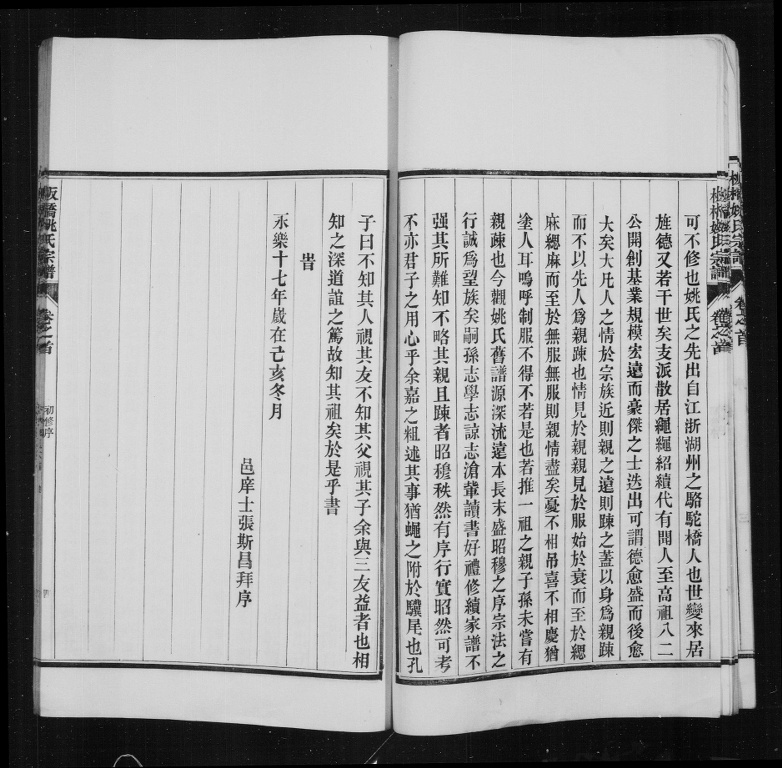 可不修也姚氏之先出自江浙湖州之駱駝橋人也世變來居
旌德又若干世矣支派散居繩繩紹續代有聞人至高祖八二
公開創基業規模宏遠而豪傑之士迭出可謂德愈盛而後愈
大矣大凡人之情於宗族近則親之遠則踈之蓋以身爲親踈
而不以先人爲親踈也情見於親親見於服始於衰而至於緦
麻緦麻而至於無服無服則親情盡矣憂不相吊喜不相慶猶
塗人耳嗚呼制服不得不若是也若推一祖之親子孫未嘗有
親踈也今觀姚氏舊譜源深流遠本長末盛昭穆之序宗法之
行誠爲望族矣嗣孫志學志諒志滄輩讀書好禮修續家譜不
强其所難知不略其親且踈者昭穆秩然有序行實昭然可考
不亦君子之用心乎余嘉之粗述其事猶蠅之附於驥尾也孔
子曰不知其人視其友不知其父視其子余與三友益者也相
知之深道誼之篤故知其祖矣於是乎書
旹
永樂十七年歲在己亥冬月
邑庠士張斯昌拜序
板橋姚氏宗譜
卷之首
初修序